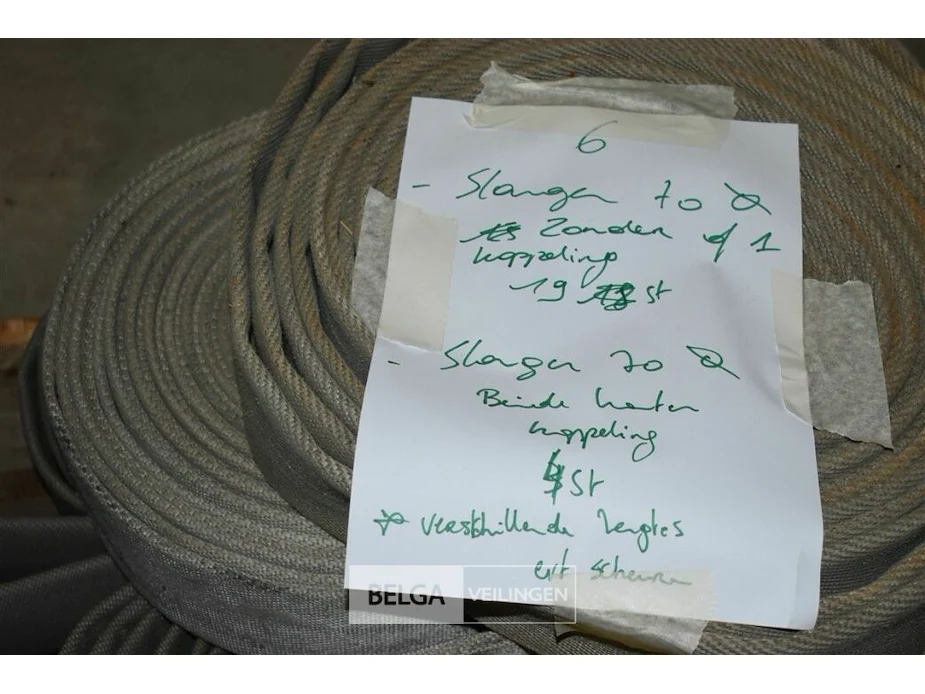 6
- Slangen 70 Ø
Zonder of 1
koppeling
19 st
- Slangen 70 Ø
Beide kanten
koppeling
4 St
verschillende lengtes
scheuren
BELGA VEILINGEN